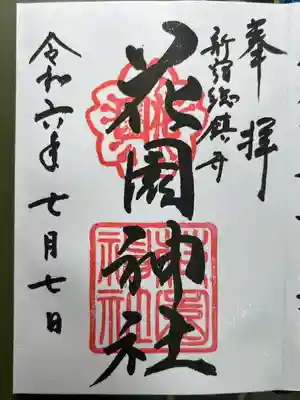 奉拝
新宿総鎮守
花園神社
令和六年七月七日
花園神社